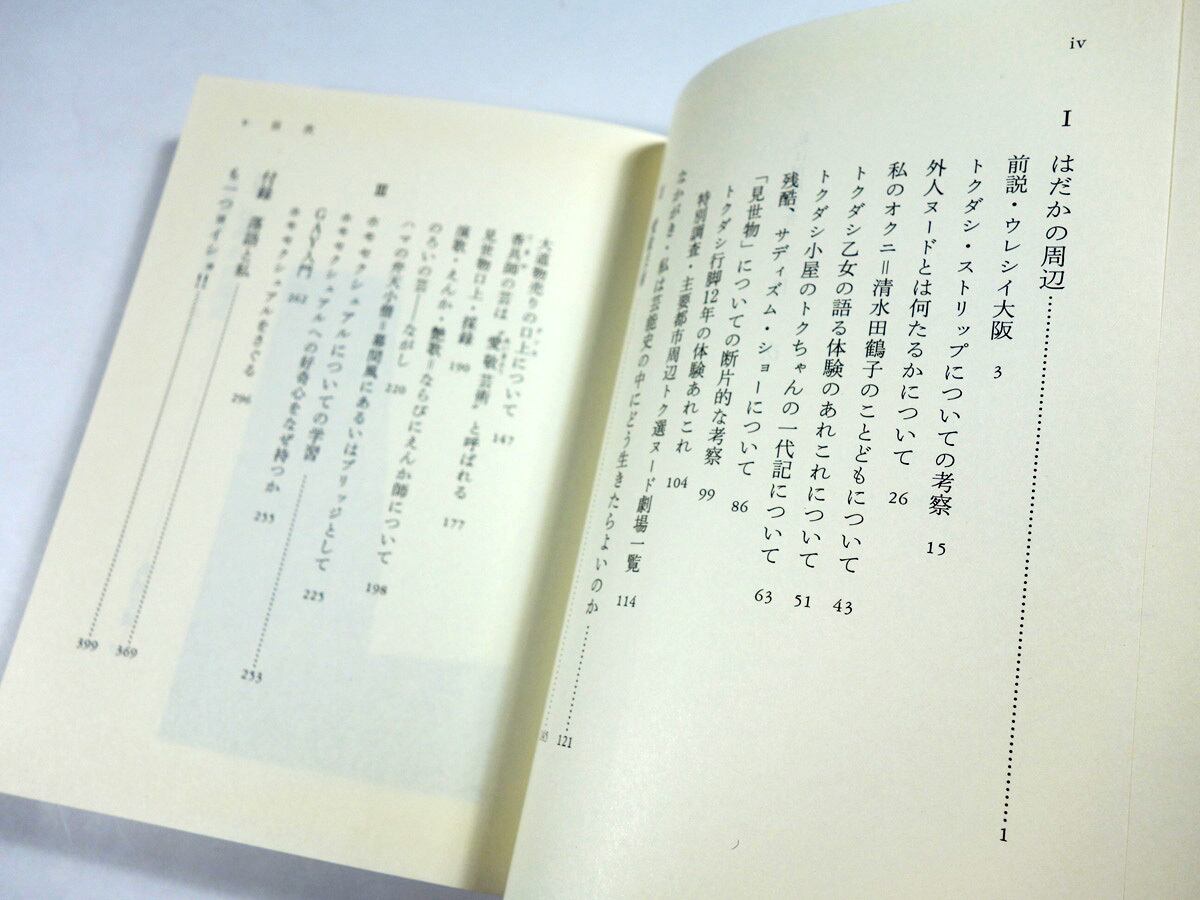 iv
I はだかの周辺 1
前説・ウレシイ大阪 3
トクダシ・ストリップについての考察 15
外人ヌードとは何たるかについて 26
私のオクニ＝清水田鶴子のことどもについて 43
トクダシ乙女の語る体験のあれこれについて 51
トクダシ小屋のトクちゃんの一代記について 63
残酷、サディズム・ショーについて 86
「見世物」についての断片的な考察 99
トクダシ行脚12年の体験あれこれ 104
特別調査・主要都市周辺トク選ヌード劇場一覧 114
なかがき・私は芸能史の中にどう生きたらよいのか 121
II
大道物売りの口上について 147
香具師の芸は〝愛敬芸術〟と呼ばれる 177
見世物口上・採録 190
演歌・えんか・艶歌＝ならびにえんか師について 198
のろいの芸――ながし 220
ハマの弁天小僧＝幕間風にあるいはブリッジとして 225
III ホモセクシュアルについての学習 253
ホモセクシュアルへの好奇心をなぜ持つか 255
GAY入門 262
ホモセクシュアルをさぐる 296
付録 落語と私 369
も一つヨイショ!! 399
目次